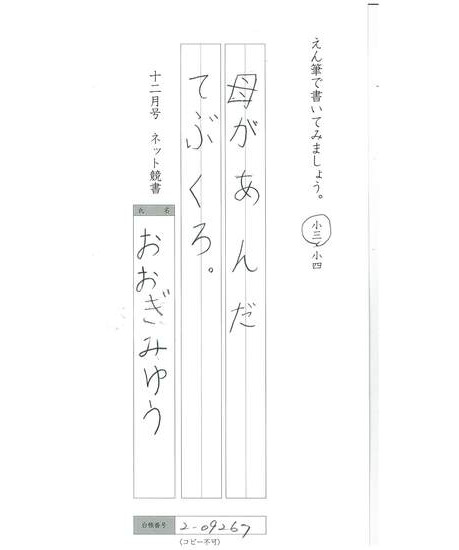 えん筆で書いてみましょう。 小三 小四
母があんだ
てぶくろ。
十二月号 ネット競書
氏名
おおぎみゆう
台帳番号
2-09267
(コピー不可)